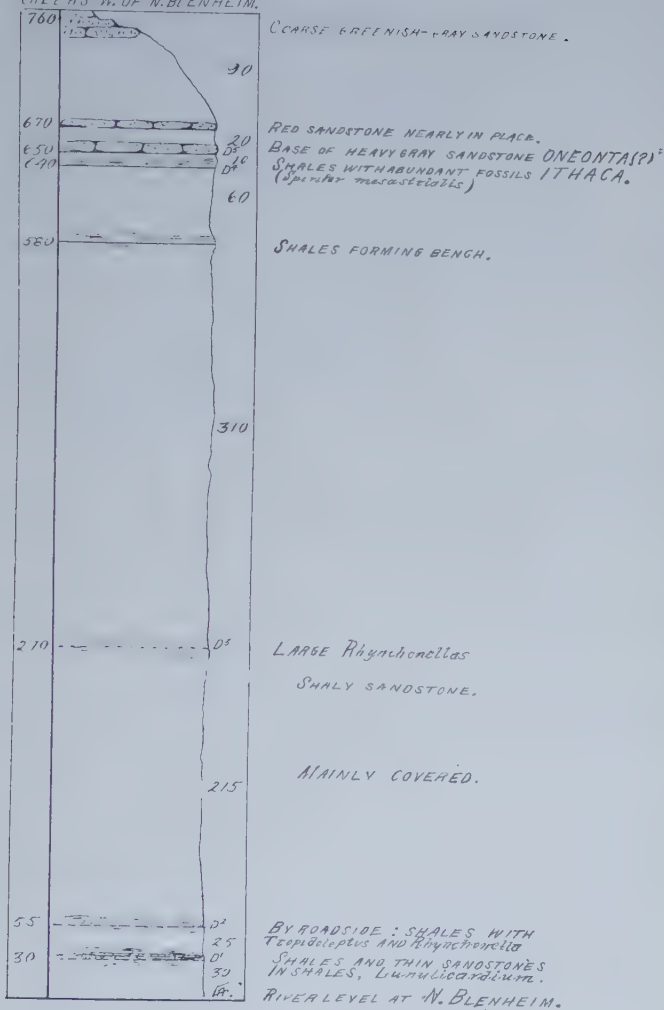 W. OF N. BLENHEIM.
760
COARSE GREENISH-GRAY SANDSTONE.
90
670
RED SANDSTONE NEARLY IN PLACE.
20
650
D⁵
BASE OF HEAVY GRAY SANDSTONE ONEONTA(?)
640
10
D⁴
SHALES WITH ABUNDANT FOSSILS ITHACA.
(Spirifer mesastrialis)
60
580
SHALES FORMING BENCH.
310
270
D³
LARGE Rhynchonellas
SHALY SANDSTONE.
MAINLY COVERED.
215
55
D²
BY ROADSIDE: SHALES WITH
Tropidoleptus AND Rhynchonella
25
30
D¹
SHALES AND THIN SANDSTONES
IN SHALES, Lunulicardium.
30
Ft.
RIVER LEVEL AT N. BLENHEIM.